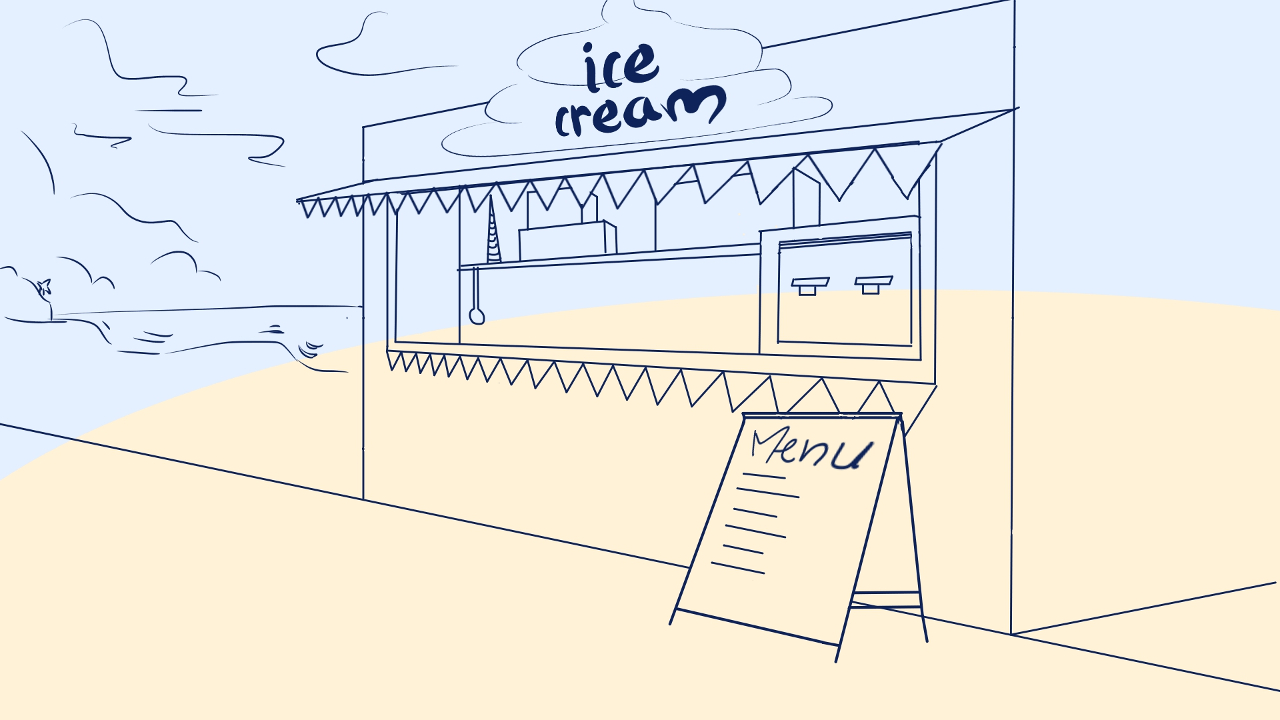 ice
cream
Menu